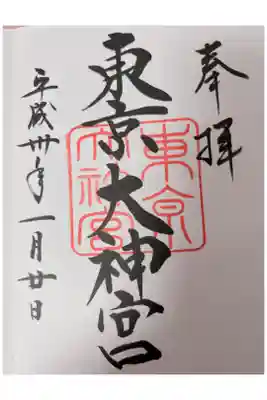 奉拝
東京大神宮
平成卅年一月廿日
東京
大神宮